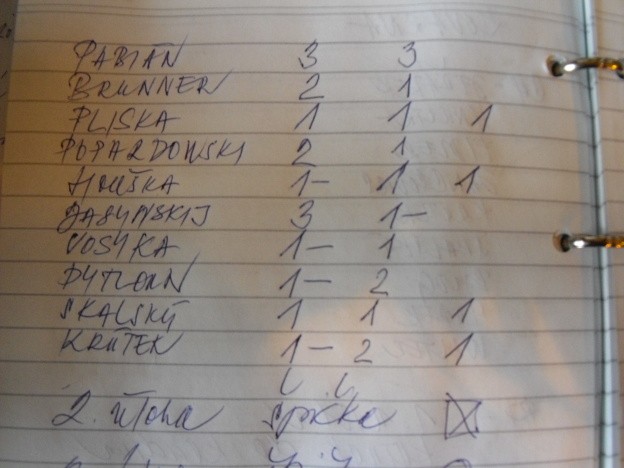 FABIÁN 3 3
BRUNNER 2 1
PLISKA 1 1 1
POPARDOWSKI 2 1
HRUŠKA 1– 1 1
JASYNSKIJ 3 1–
VOSYKA 1– 1
PYTLOUN 1– 2
SKALSKÝ 1 1 1
KRŮTEK 1– 2 1
2. útoha špička